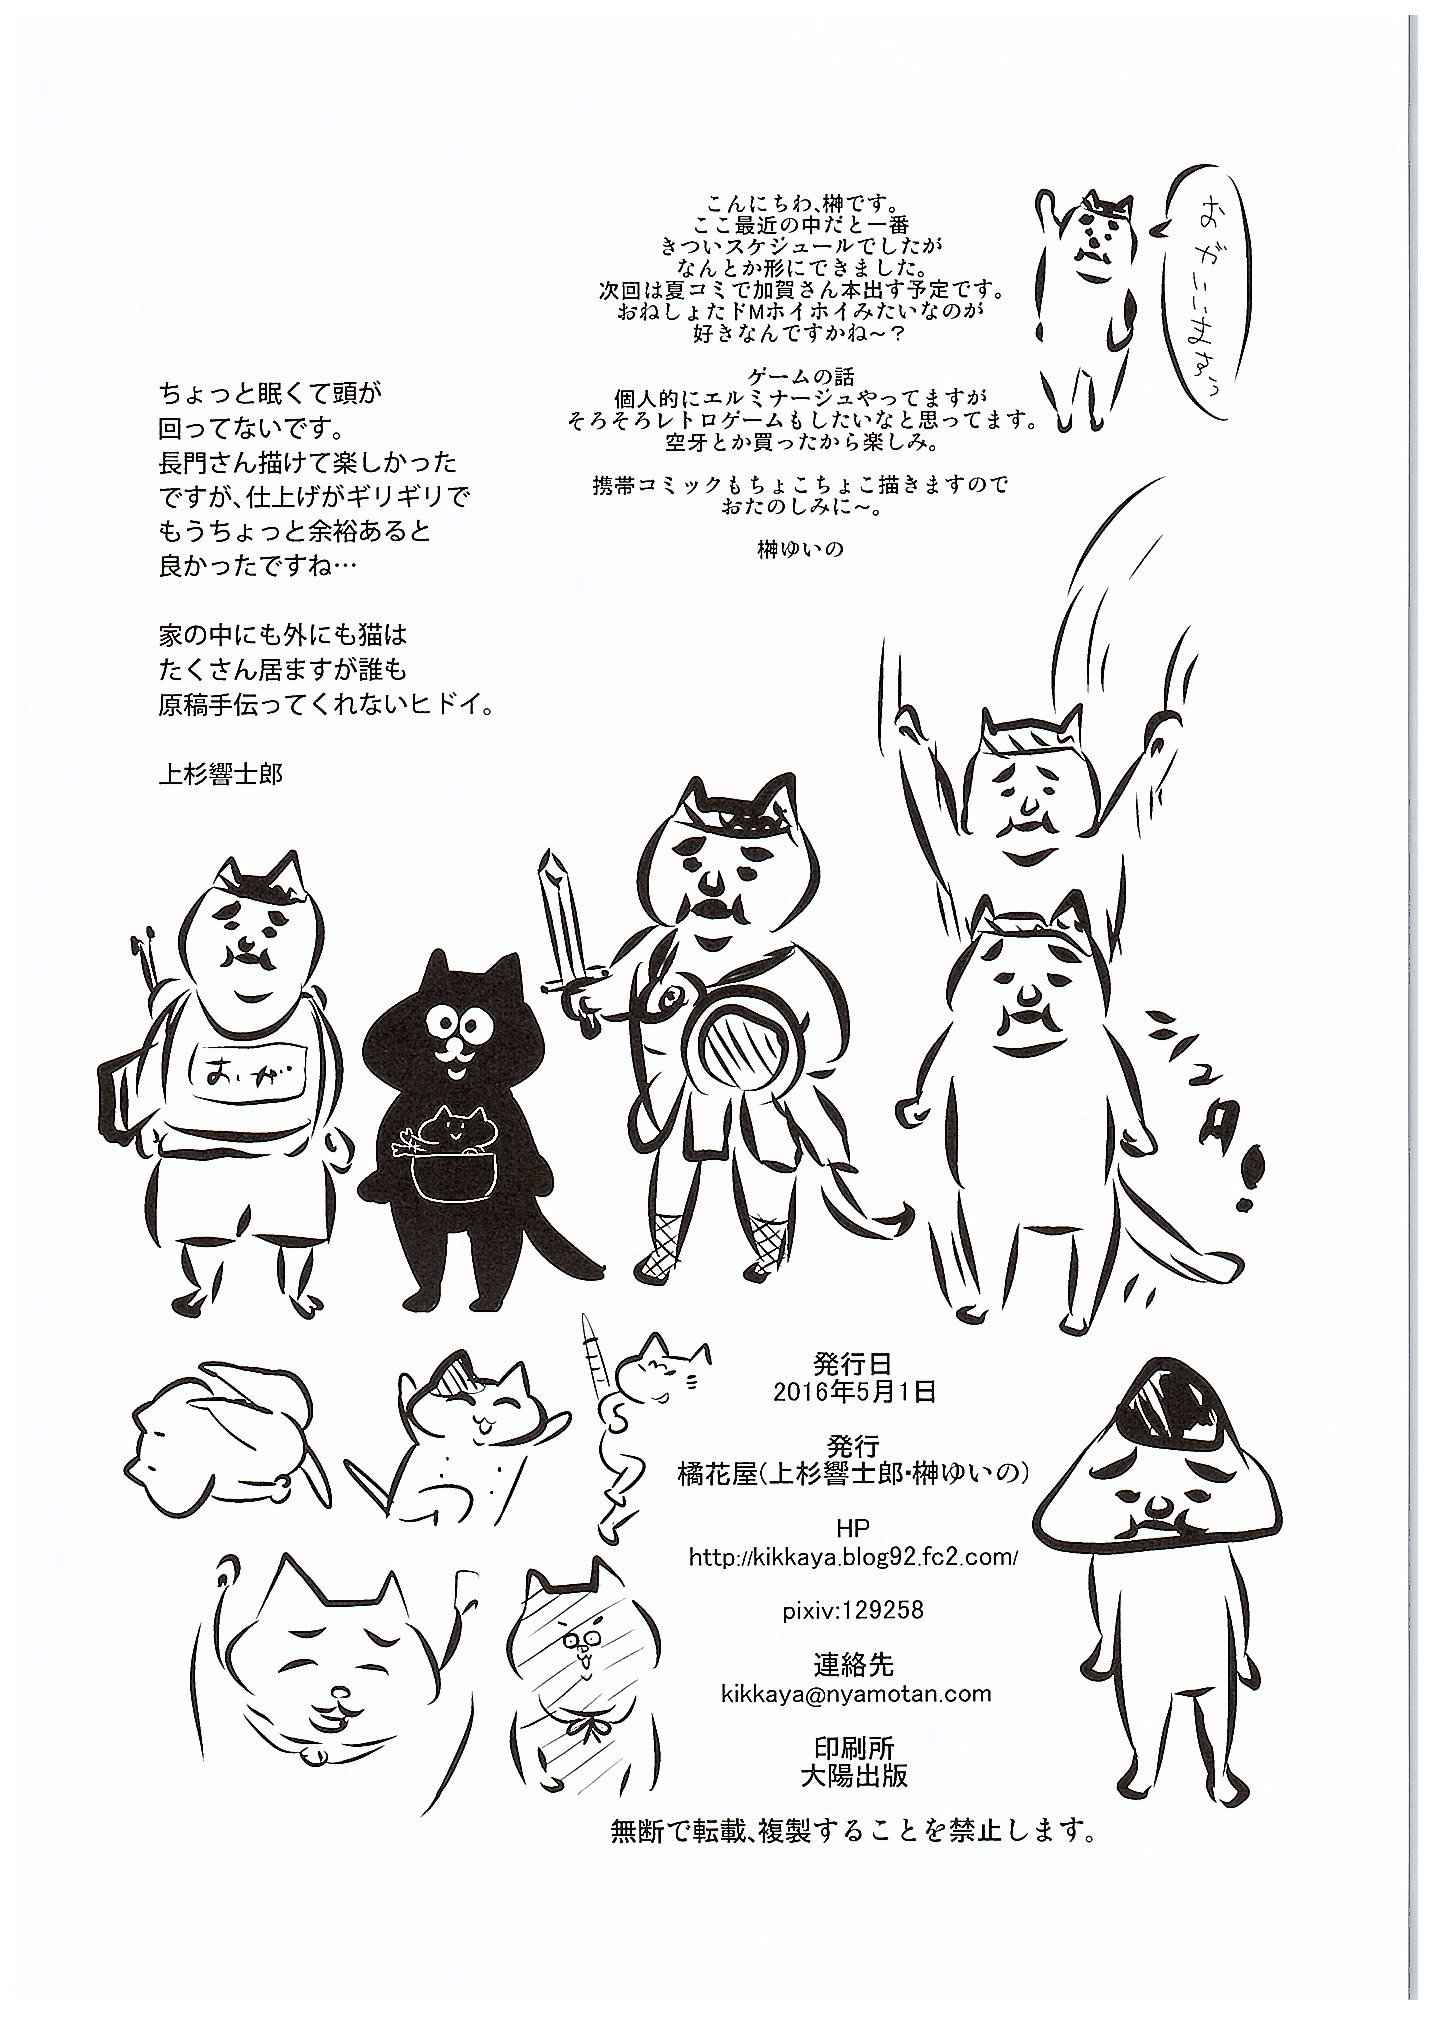 こんにちわ、榊です。
ここ最近の中だと一番
きついスケジュールでしたが
なんとか形にできました。
次回は夏コミで加賀さん本出す予定です。
おねしょたドMホイホイみたいなのが
好きなんですかね～？
ゲームの話
個人的にエルミナージュやってますが
そろそろレトロゲームもしたいなと思ってます。
空牙とか買ったから楽しみ。
携帯コミックもちょこちょこ描きますので
おたのしみに～。
榊ゆいの
ちょっと眠くて頭が
回ってないです。
長門さん描けて楽しかった
ですが、仕上げがギリギリで
もうちょっと余裕あると
良かったですね…
家の中にも外にも猫は
たくさん居ますが誰も
原稿手伝ってくれないヒドイ。
上杉響士郎
おがいいますぅ
おが
シュタ!
発行日
2016年5月1日
発行
橘花屋(上杉響士郎・榊ゆいの)
HP
http://kikkaya.blog92.fc2.com/
pixiv:129258
連絡先
kikkaya@nyamotan.com
印刷所
大陽出版
無断で転載、複製することを禁止します。